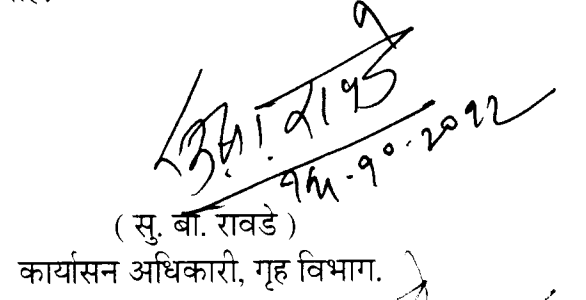 सु.बा. रावडे
१५-१०-२०१२
( सु. बा. रावडे )
कार्यासन अधिकारी, गृह विभाग.